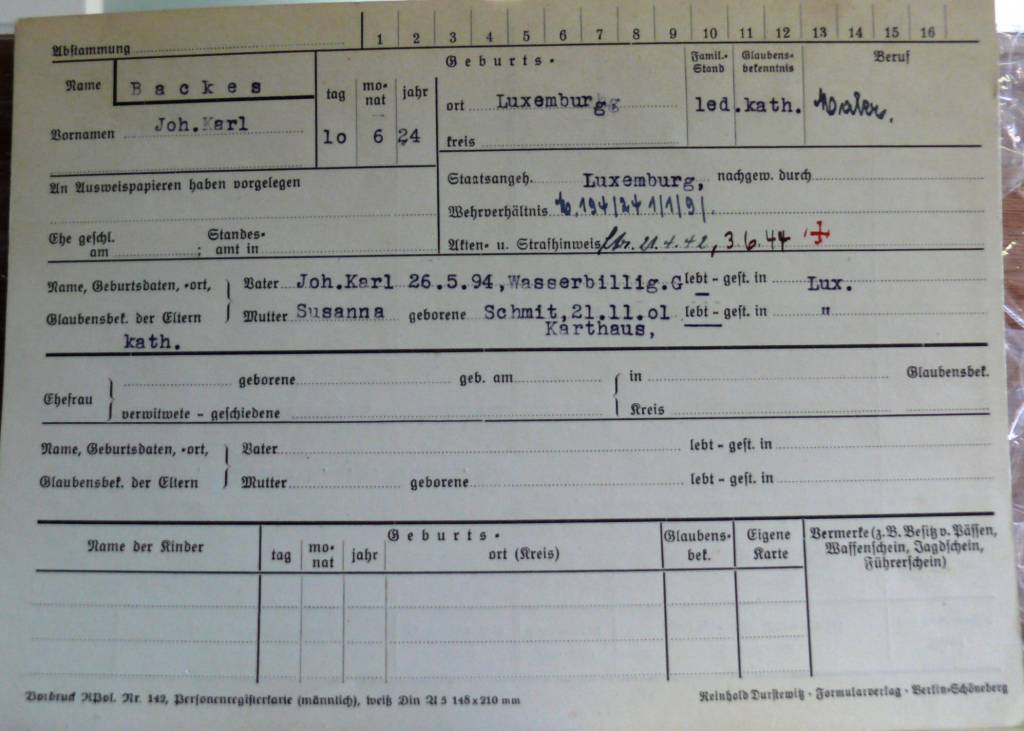 Abstammung 1 2 3 4 5 6 7 8 9 10 11 12 13 14 15 16
Name Backes
Vornamen Joh.Karl
tag mo-nat jahr
lo 6 24
Geburts-
ort Luxemburg
kreis
Famil.-Stand
led.
Glaubens-bekenntnis
kath.
Beruf
Maler.
An Ausweispapieren haben vorgelegen
Ehe geschl. am ; Standes-amt in
Staatsangeh. Luxemburg, nachgew. durch
Wehrverhältnis
Akten- u. Strafhinweis 21.4.42, 3.6.44
Name, Geburtsdaten, -ort, Vater Joh.Karl 26.5.94,Wasserbillig.G lebt - gest. in Lux.
Glaubensbek. der Eltern Mutter Susanna geborene Schmit,21.11.o1 lebt - gest. in "
kath. Karthaus,
Ehefrau geborene geb. am in Glaubensbek.
verwitwete - geschiedene Kreis
Name, Geburtsdaten, -ort, Vater lebt - gest. in
Glaubensbek. der Eltern Mutter geborene lebt - gest. in
Name der Kinder
Geburts-
tag mo-nat jahr ort (Kreis)
Glaubens-bek.
Eigene Karte
Vermerke (z. B. Besitz v. Pässen,
Waffenschein, Jagdschein,
Führerschein)
Vordruck RPol. Nr. 142, Personenregisterkarte (männlich), weiß Din A 5 148 x 210 mm
Reinhold Durstewitz · Formularverlag · Berlin-Schöneberg